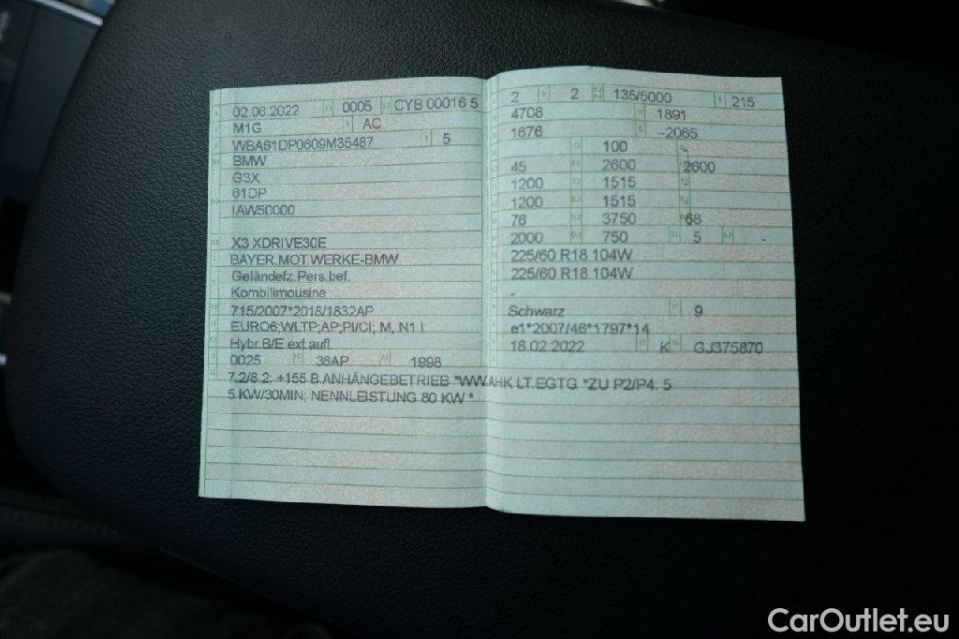 02.06.2022 0005 CYB 00016 5
M1G AC
WBA61DP0609M35487 5
BMW
G3X
61DP
IAW50000
X3 XDRIVE30E
BAYER.MOT.WERKE-BMW
Geländefz.Pers.bef.
Kombilimousine
715/2007*2018/1832AP
EURO6;WLTP;AP;PI/CI; M, N1 I
Hybr.B/E ext.aufl.
0025 36AP 1998
7.2/8.2: +155 B.ANHÄNGEBETRIEB *WW.AHK LT.EGTG *ZU P2/P4: 5
5 KW/30MIN; NENNLEISTUNG 80 KW *
2 2 135/5000 215
4708 1891
1676 -2065
100 -
45 2600 2600
1200 1515
1200 1515
76 3750 68
2000 750 5 -
225/60 R18 104W
225/60 R18 104W
-
Schwarz 9
e1*2007/46*1797*14
18.02.2022 K GJ375870
CarOutlet.eu